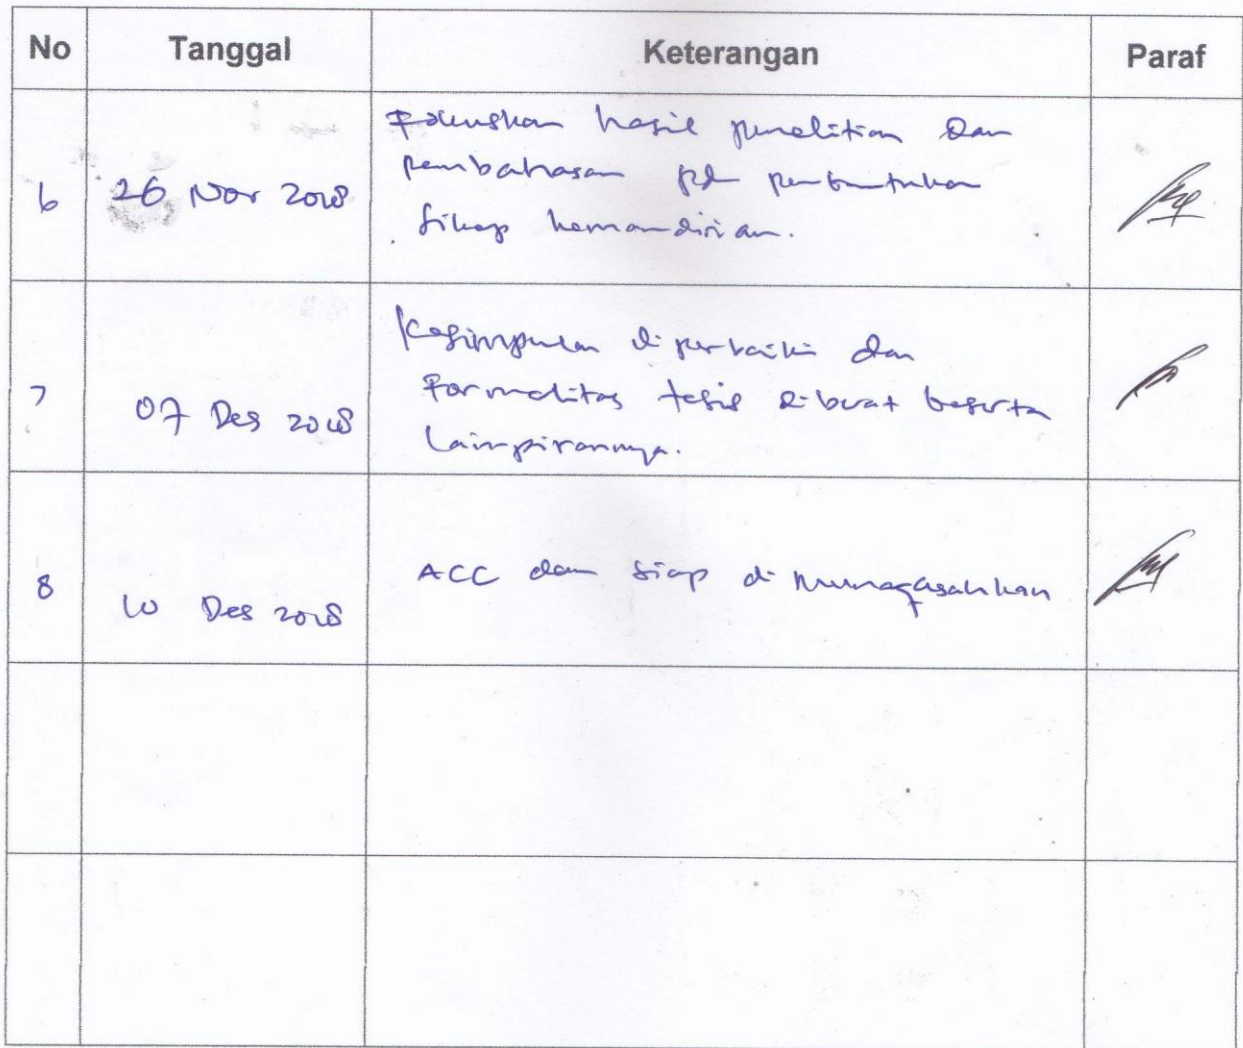 No Tanggal Keterangan Paraf
6 26 Nov 2018 Fokuskan hasil penelitian dan
pembahasan pd pembentukan
sikap kemandirian.
7 07 Des 2018 Kesimpulan diperbaiki dan
formalitas tesis dibuat beserta
lampirannya.
8 10 Des 2018 ACC dan siap di munaqasahkan